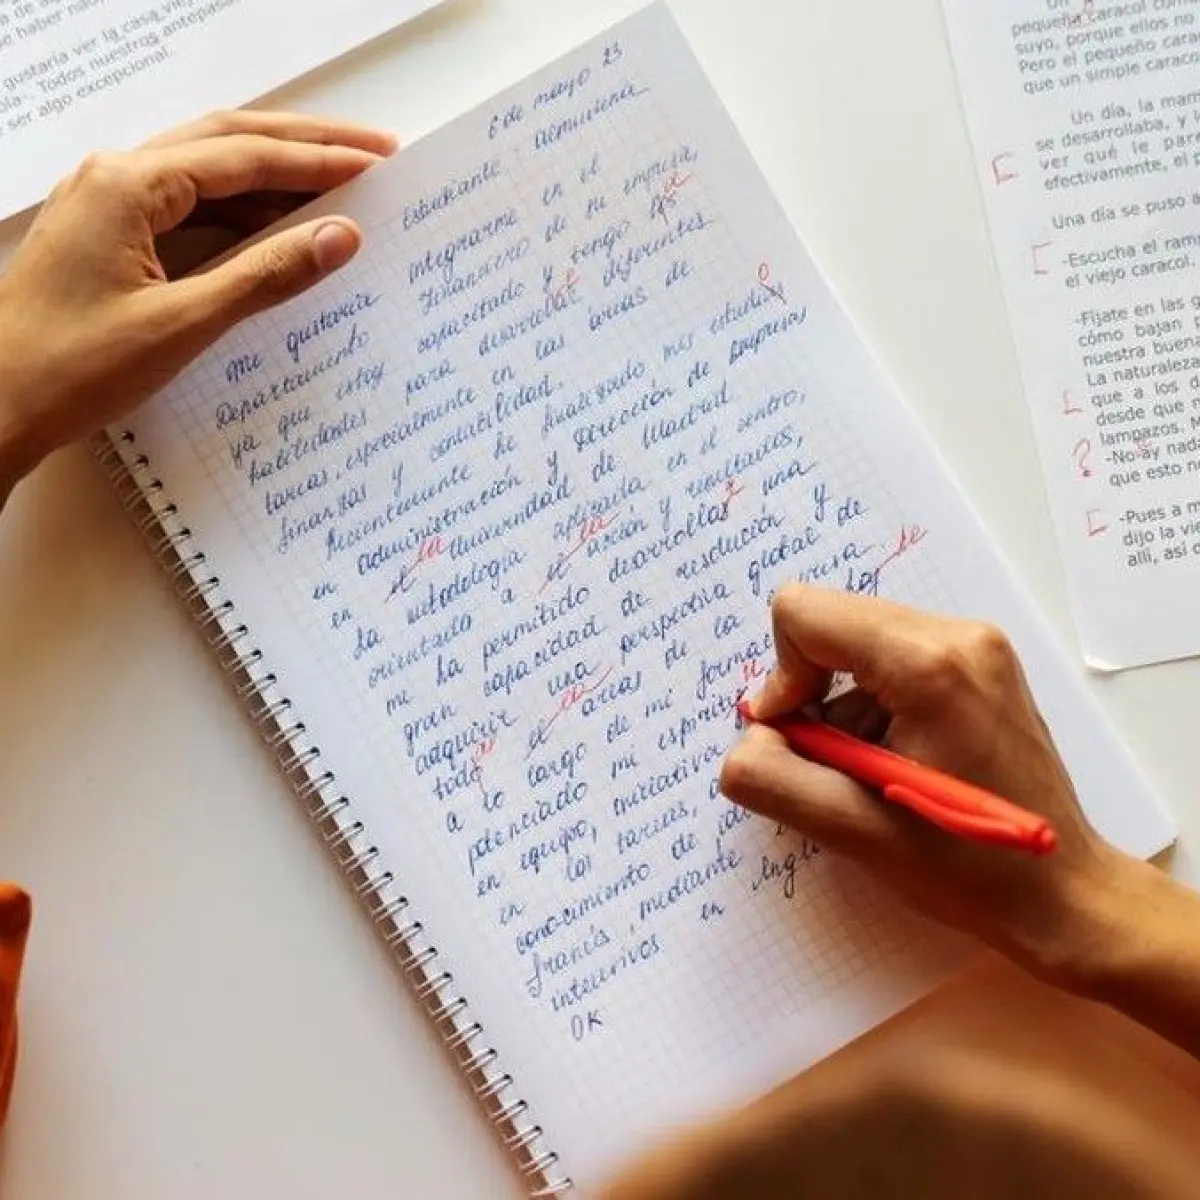 de saber
gustaría ver la casa vieja
Todos nuestros antepasa
ser algo excepcional.
6 de mayo 23
Estudiante
Me gustaría integrarme en el
Departamento Financiero de su empresa,
ya que estoy capacitado y tengo las a
habilidades para desarrollar r diferentes
tareas, especialmente en las áreas de
finanzas y contabilidad.
Recientemente he finalizado mis estudios o
en administración y Dirección de Empresas
en el la Universidad de Madrid
La metodología aplicada en el centro,
orientada a el la acción y resultados,
me ha permitido desarrollar r una
gran capacidad de resolución y
adquirir una perspectiva global de
todo as el ca areas de la empresa. de
a lo largo de mi formac los
potenciado mi espíritu u
en equipo, iniciativa
en los tareas, a
conocimiento de idi
francés, mediante
intensivos en Ingl
OK
pequeño caracol
suyo, porque ellos no
Pero el pequeño cara
que un simple caraco
Un día, la mam
se desarrollaba, y
ver qué le pare
efectivamente, el
Una día se puso a
-Escucha el ram
el viejo caracol.
-Fíjate en las
cómo bajan
nuestra buena
La naturaleza
que a los
desde que
lampazos.
? -No ay nad
que esto n
-Pues a m
dijo la vi
allí, así